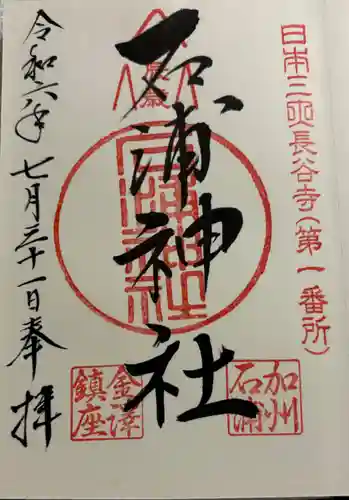 日本三所長谷寺（第一番所）
石浦神社
加州
石浦
金澤
鎮座
令和六年七月三十一日奉拝